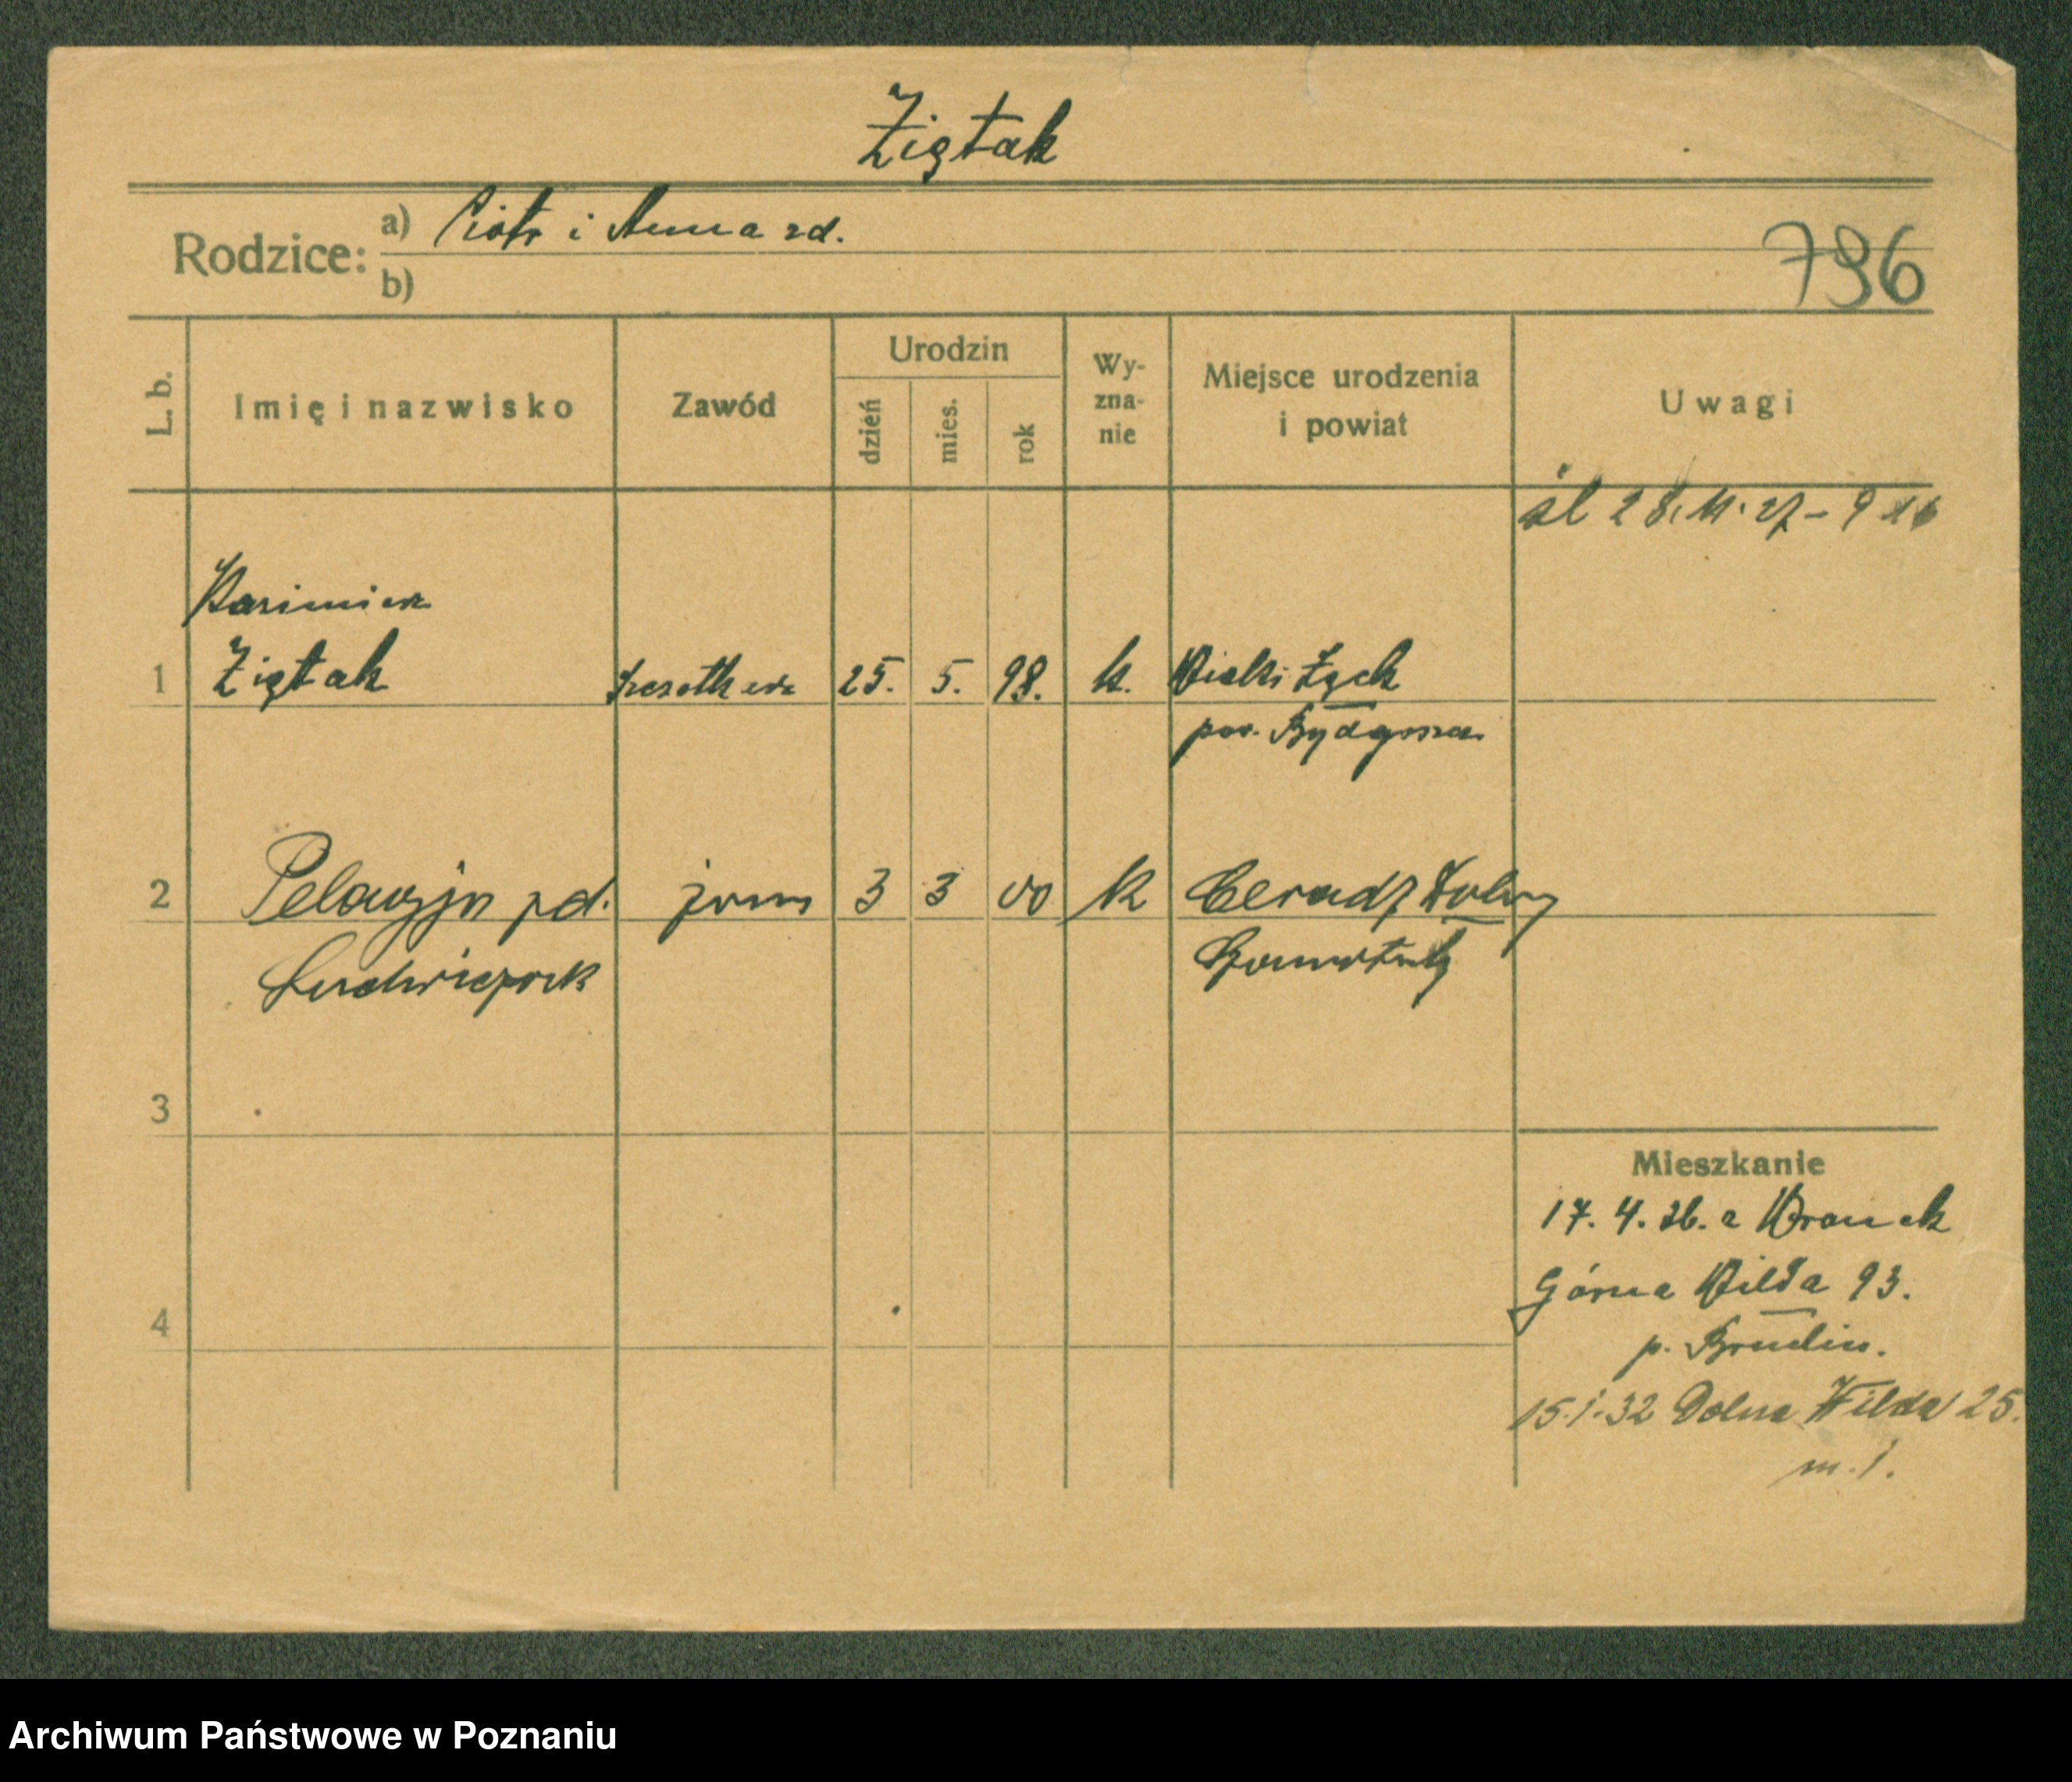 Ziętak
Rodzice: a) Piotr i Anna zd.
b)
796
L. b.
Imię i nazwisko
Zawód
Urodzin
dzień
mies.
rok
Wy-
zna-
nie
Miejsce urodzenia
i powiat
Uwagi
śl 28.11.27 -
Kazimierz
1 Ziętak 25. 5. 98. k. Wielki Łąck
pow. Bydgoszcz
2 Pelagja zd. żona 3 3 00 k Ceradz Dolny
Ludwiczak Szamotuły
3
Mieszkanie
17. 4. 26. z Wronek
Górna Wilda 93.
4
p.
15.1.32 Dolna Wilda 25.
m. 1.
Archiwum Państwowe w Poznaniu